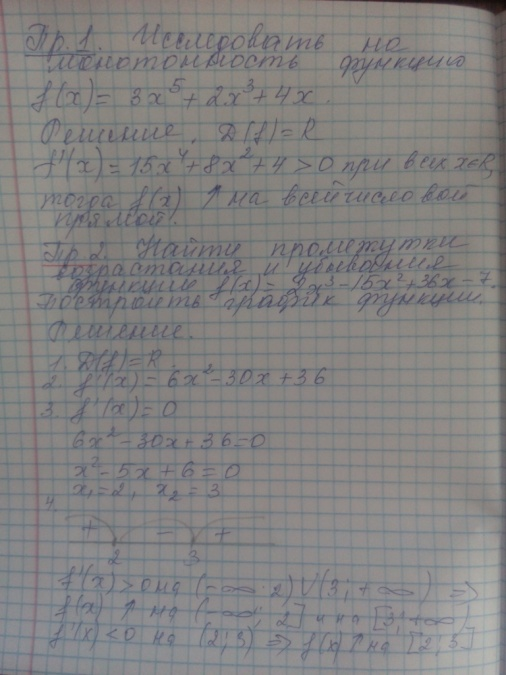 Пр. 1. Исследовать на
монотонность функцию
f(x) = 3x⁵ + 2x³ + 4x.
Решение. D(f) = R
f'(x) = 15x⁴ + 8x² + 4 > 0 при всех x∈R,
тогда f(x) ↑ на всей числовой
прямой.
Пр. 2. Найти промежутки
возрастания и убывания
функции f(x) = 2x³ - 15x² + 36x - 7.
Построить график функции.
Решение.
1. D(f) = R.
2. f'(x) = 6x² - 30x + 36
3. f'(x) = 0
6x² - 30x + 36 = 0
x² - 5x + 6 = 0
x₁ = 2, x₂ = 3
4.
+ - +
2 3
f'(x) > 0 на (-∞; 2) ∪ (3; +∞) ⇒
f(x) ↑ на (-∞; 2] и на [3; +∞)
f'(x) < 0 на (2; 3) ⇒ f(x) ↑ на [2; 3]